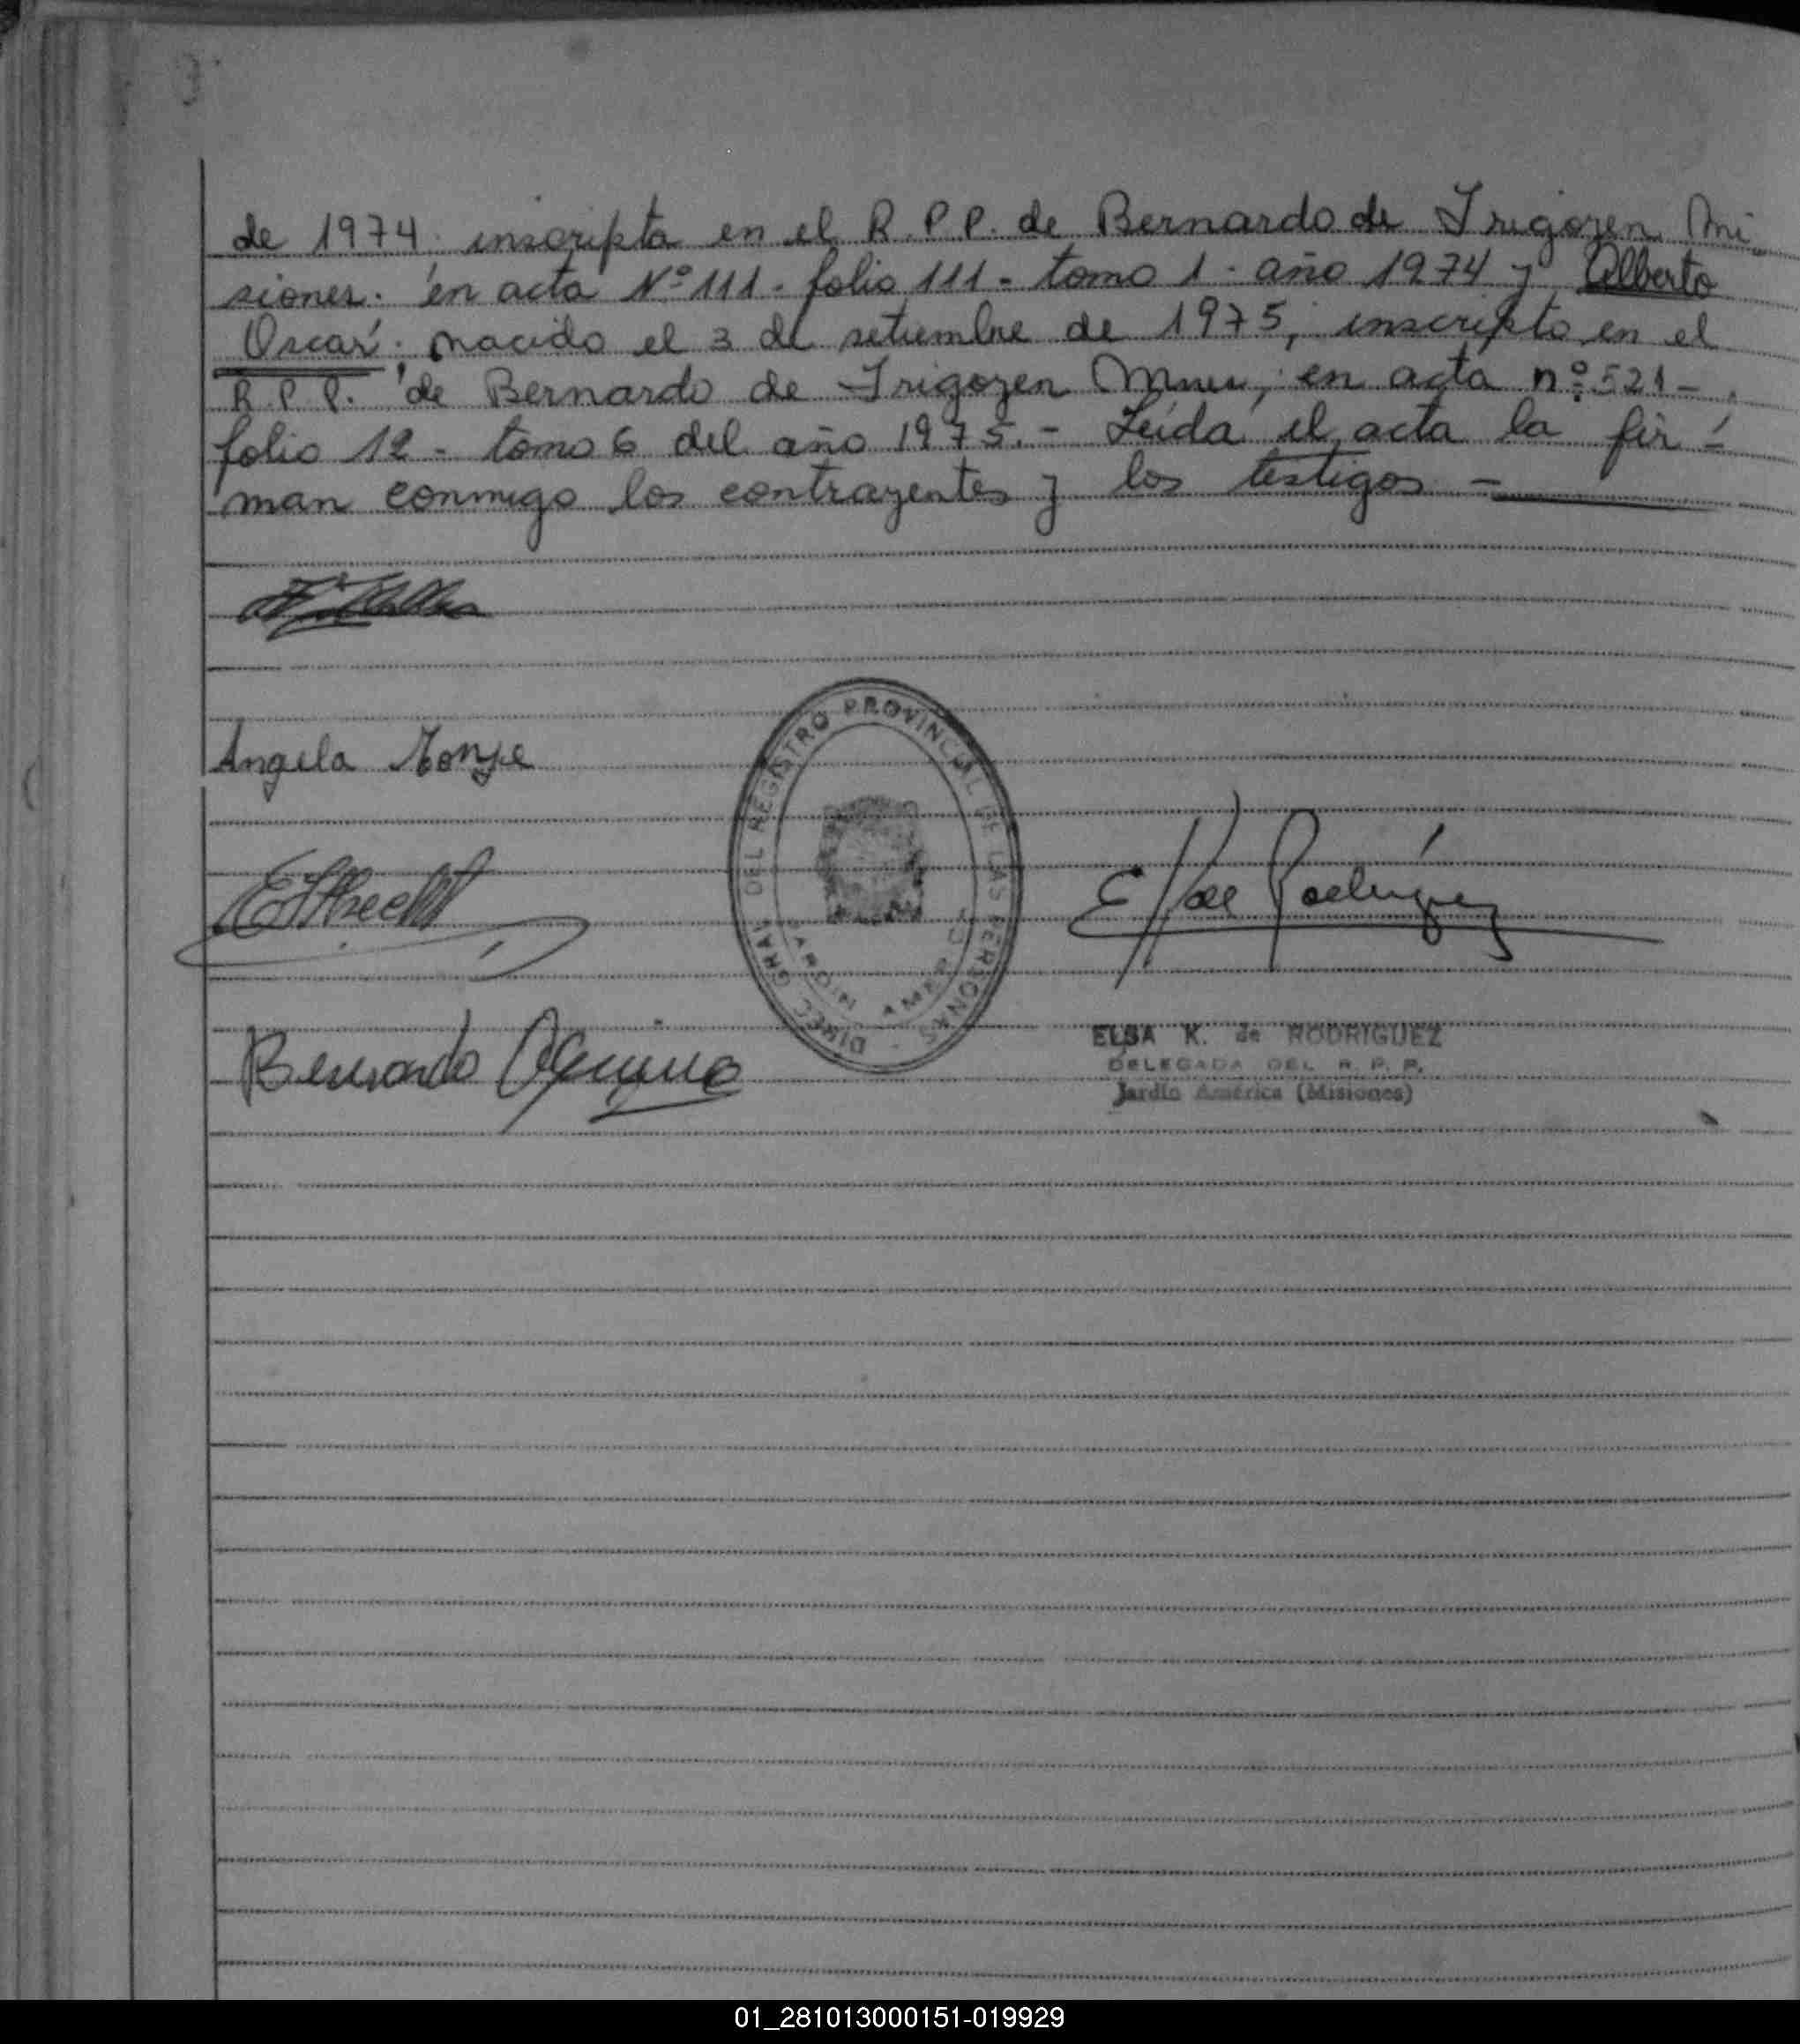 de 1974. inscripta en el R.P.P. de Bernardo de Irigoyen Mi
siones. en acta Nº 111 - folio 111 - tomo 1 - año 1974 y Alberto
Oscar. nacido el 3 de setiembre de 1975, inscripto en el
R.P.P. de Bernardo de Irigoyen Mnes, en acta nº 521 -
folio 12 - tomo 6 del año 1975. - Leída el acta la fir -
man conmigo los contrayentes y los testigos -
Angela
DIREC. GRAL. DEL REGISTRO PROVINCIAL DE LAS PERSONAS -
JARDIN AMERICA
E K de Rodriguez
Bernardo
ELSA K. de RODRIGUEZ
DELEGADA DEL R. P. P.
Jardín América (Misiones)
01_281013000151-019929